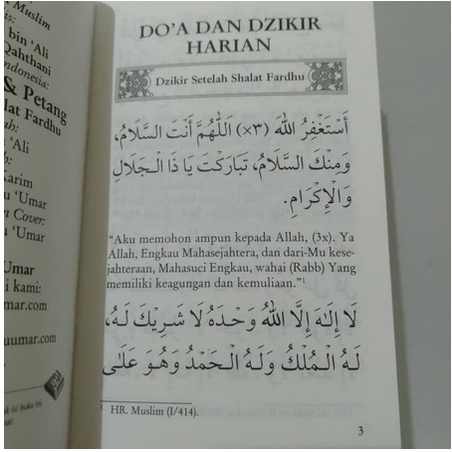 Muslim
bin 'Ali
Qahthani
donesia:
& Petang
alat Fardhu
'Ali
Karim
'Umar
Cover:
'Umar
Umar
i kami:
mar.com
uumar.com
isi buku ini
DO'A DAN DZIKIR
HARIAN
Dzikir Setelah Shalat Fardhu
أَسْتَغْفِرُ اللهَ (٣×) اَللَّهُمَّ أَنْتَ السَّلَامُ،
وَمِنْكَ السَّلَامُ، تَبَارَكْتَ يَا ذَا الْجَلَالِ
وَالْإِكْرَامِ.
"Aku memohon ampun kepada Allah, (3x). Ya
Allah, Engkau Mahasejahtera, dan dari-Mu kese-
jahteraan, Mahasuci Engkau, wahai (Rabb) Yang
memiliki keagungan dan kemuliaan."¹
لَا إِلَهَ إِلَّا اللهُ وَحْدَهُ لَا شَرِيْكَ لَهُ،
لَهُ الْمُلْكُ وَلَهُ الْحَمْدُ وَهُوَ عَلَى
¹ HR. Muslim (I/414).
3